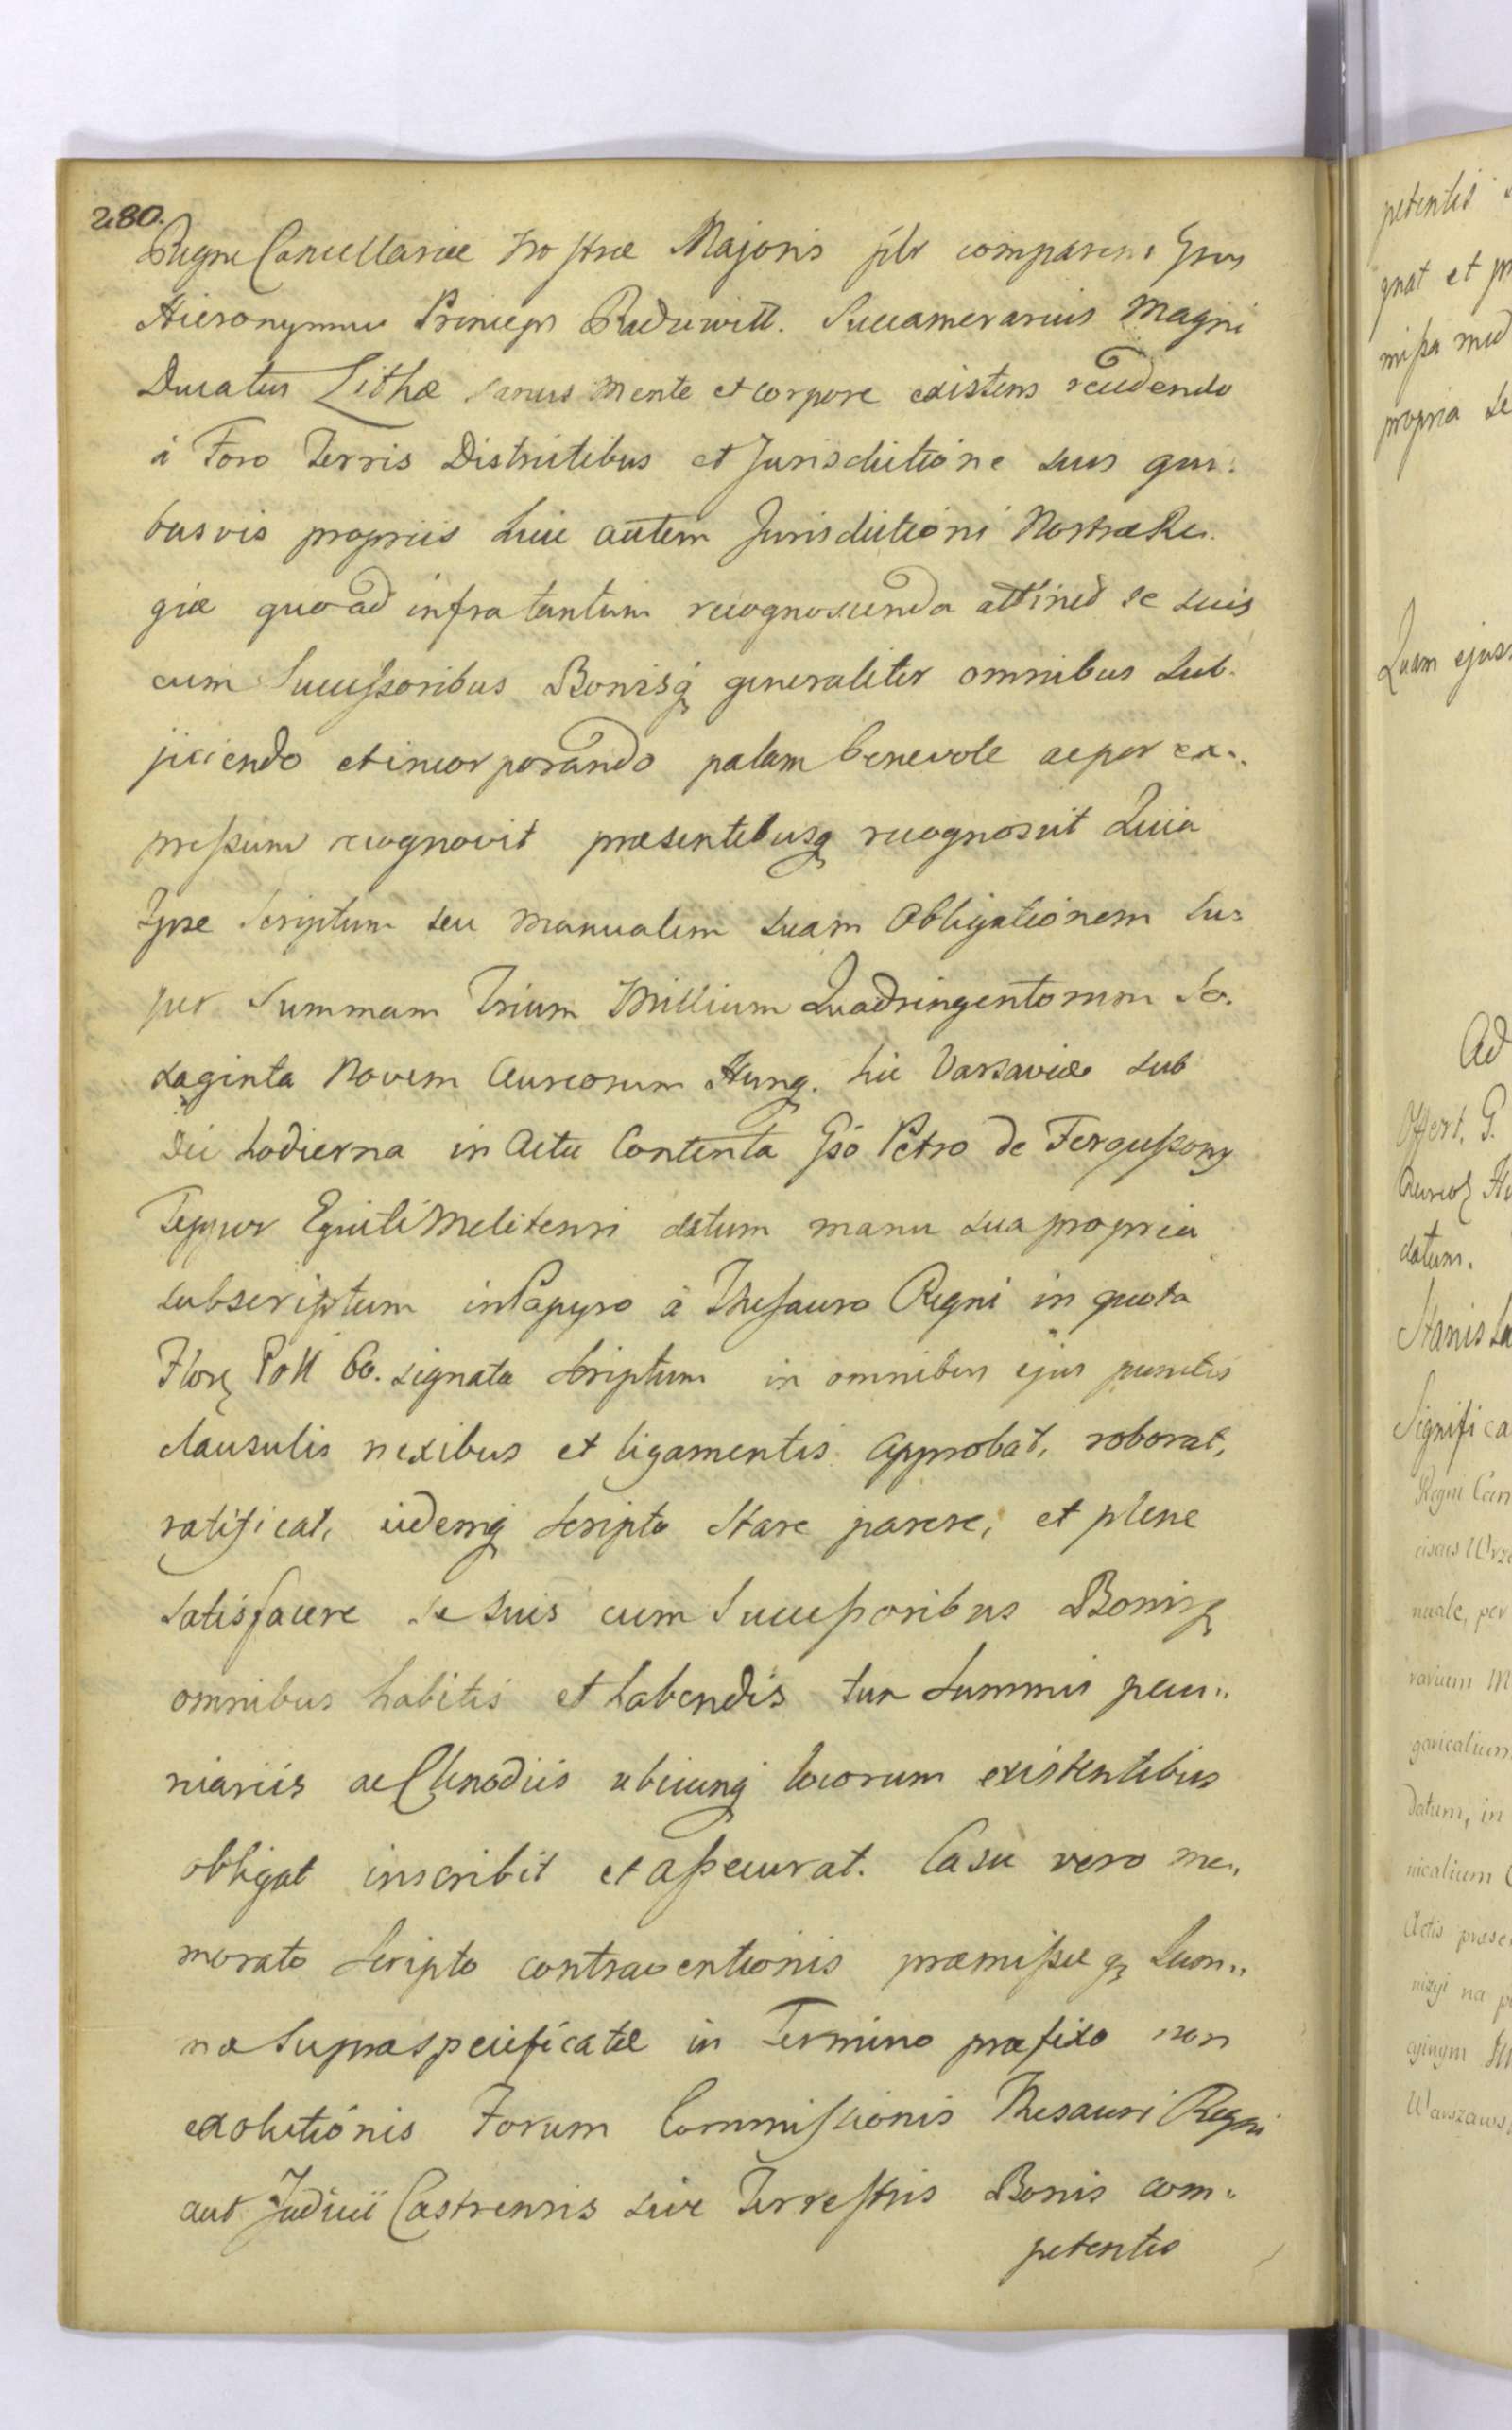 280.
Regni Cancellariæ Nostræ Majoris plr comparens Gsus
Hieronymus Princeps Radziwill. Succamerarius Magni
Ducatus Lithæ sanus mente et corpore existens recedendo
à Foro Terris Districtibus et Jurisdictione suis qui:
busvis propriis huic autem Jurisdictioni Nostræ Re:
giæ quoad infra tantum recognoscenda attinet se suis
cum Successoribus Bonisq generaliter omnibus sub:
jiciendo et incorporando palam benevole ac per ex:
pressum recognovit præsentibusq recognoscit Quia
Ipse Scriptum seu manualem suam Obligationem su=
per Summam Trium Millium Quadringentorum Se:
xaginta Novem Aureorum Hung. hic Varsaviæ sub
Die hodierna in Actu Contenta Gso Petro de Fergussony
Teppur Equiti Melitensi datum manu sua propria
subscriptum in Papyro à Thesauro Regni in quota
Flor Poll 60. signata Scriptum in omnibus ejus punctis
clausulis nexibus et ligamentis approbat, roborat,
ratificat, iidemq scripto stare parere, et plene
satisfacere se suis cum Successoribus Bonisq
omnibus habitis et habendis tum Summis pecu:
niariis ac Clenodiis ubicunq locorum existentibus
obligat inscribit et assecurat. Casu vero me:
morato Scripto contraventionis præmissæ q Sum:
mæ supraspecificatæ in Termino præfixo non
exolutionis Forum Commissionis Thesauri Regni
aut Judicii Castrensis sive Terrestris Bonis com:
petentis
petentis
gnat et
missa
propria
Quam ejus
Ad
Offert. G.
Aureor
datum.
Stanisła
Significa
Regni Can
nuale, per
varium M
datum, in
Actis
nizyi na
Warszaws